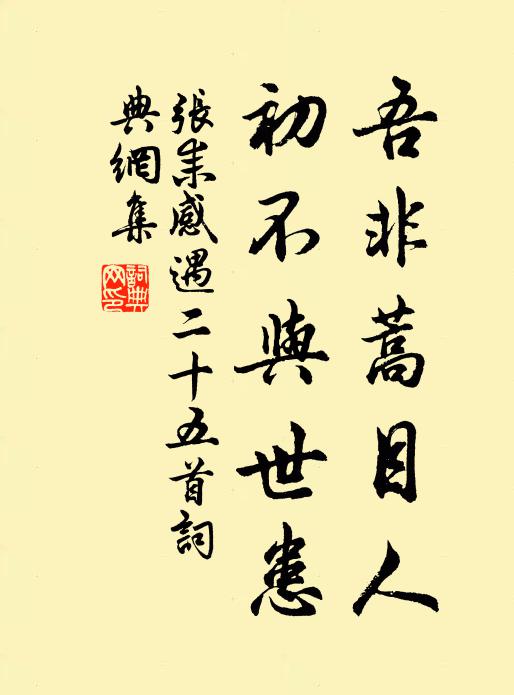 吾非蒿目人
初不與世患
張耒感遇二十五首詞
典網集
詞典網印